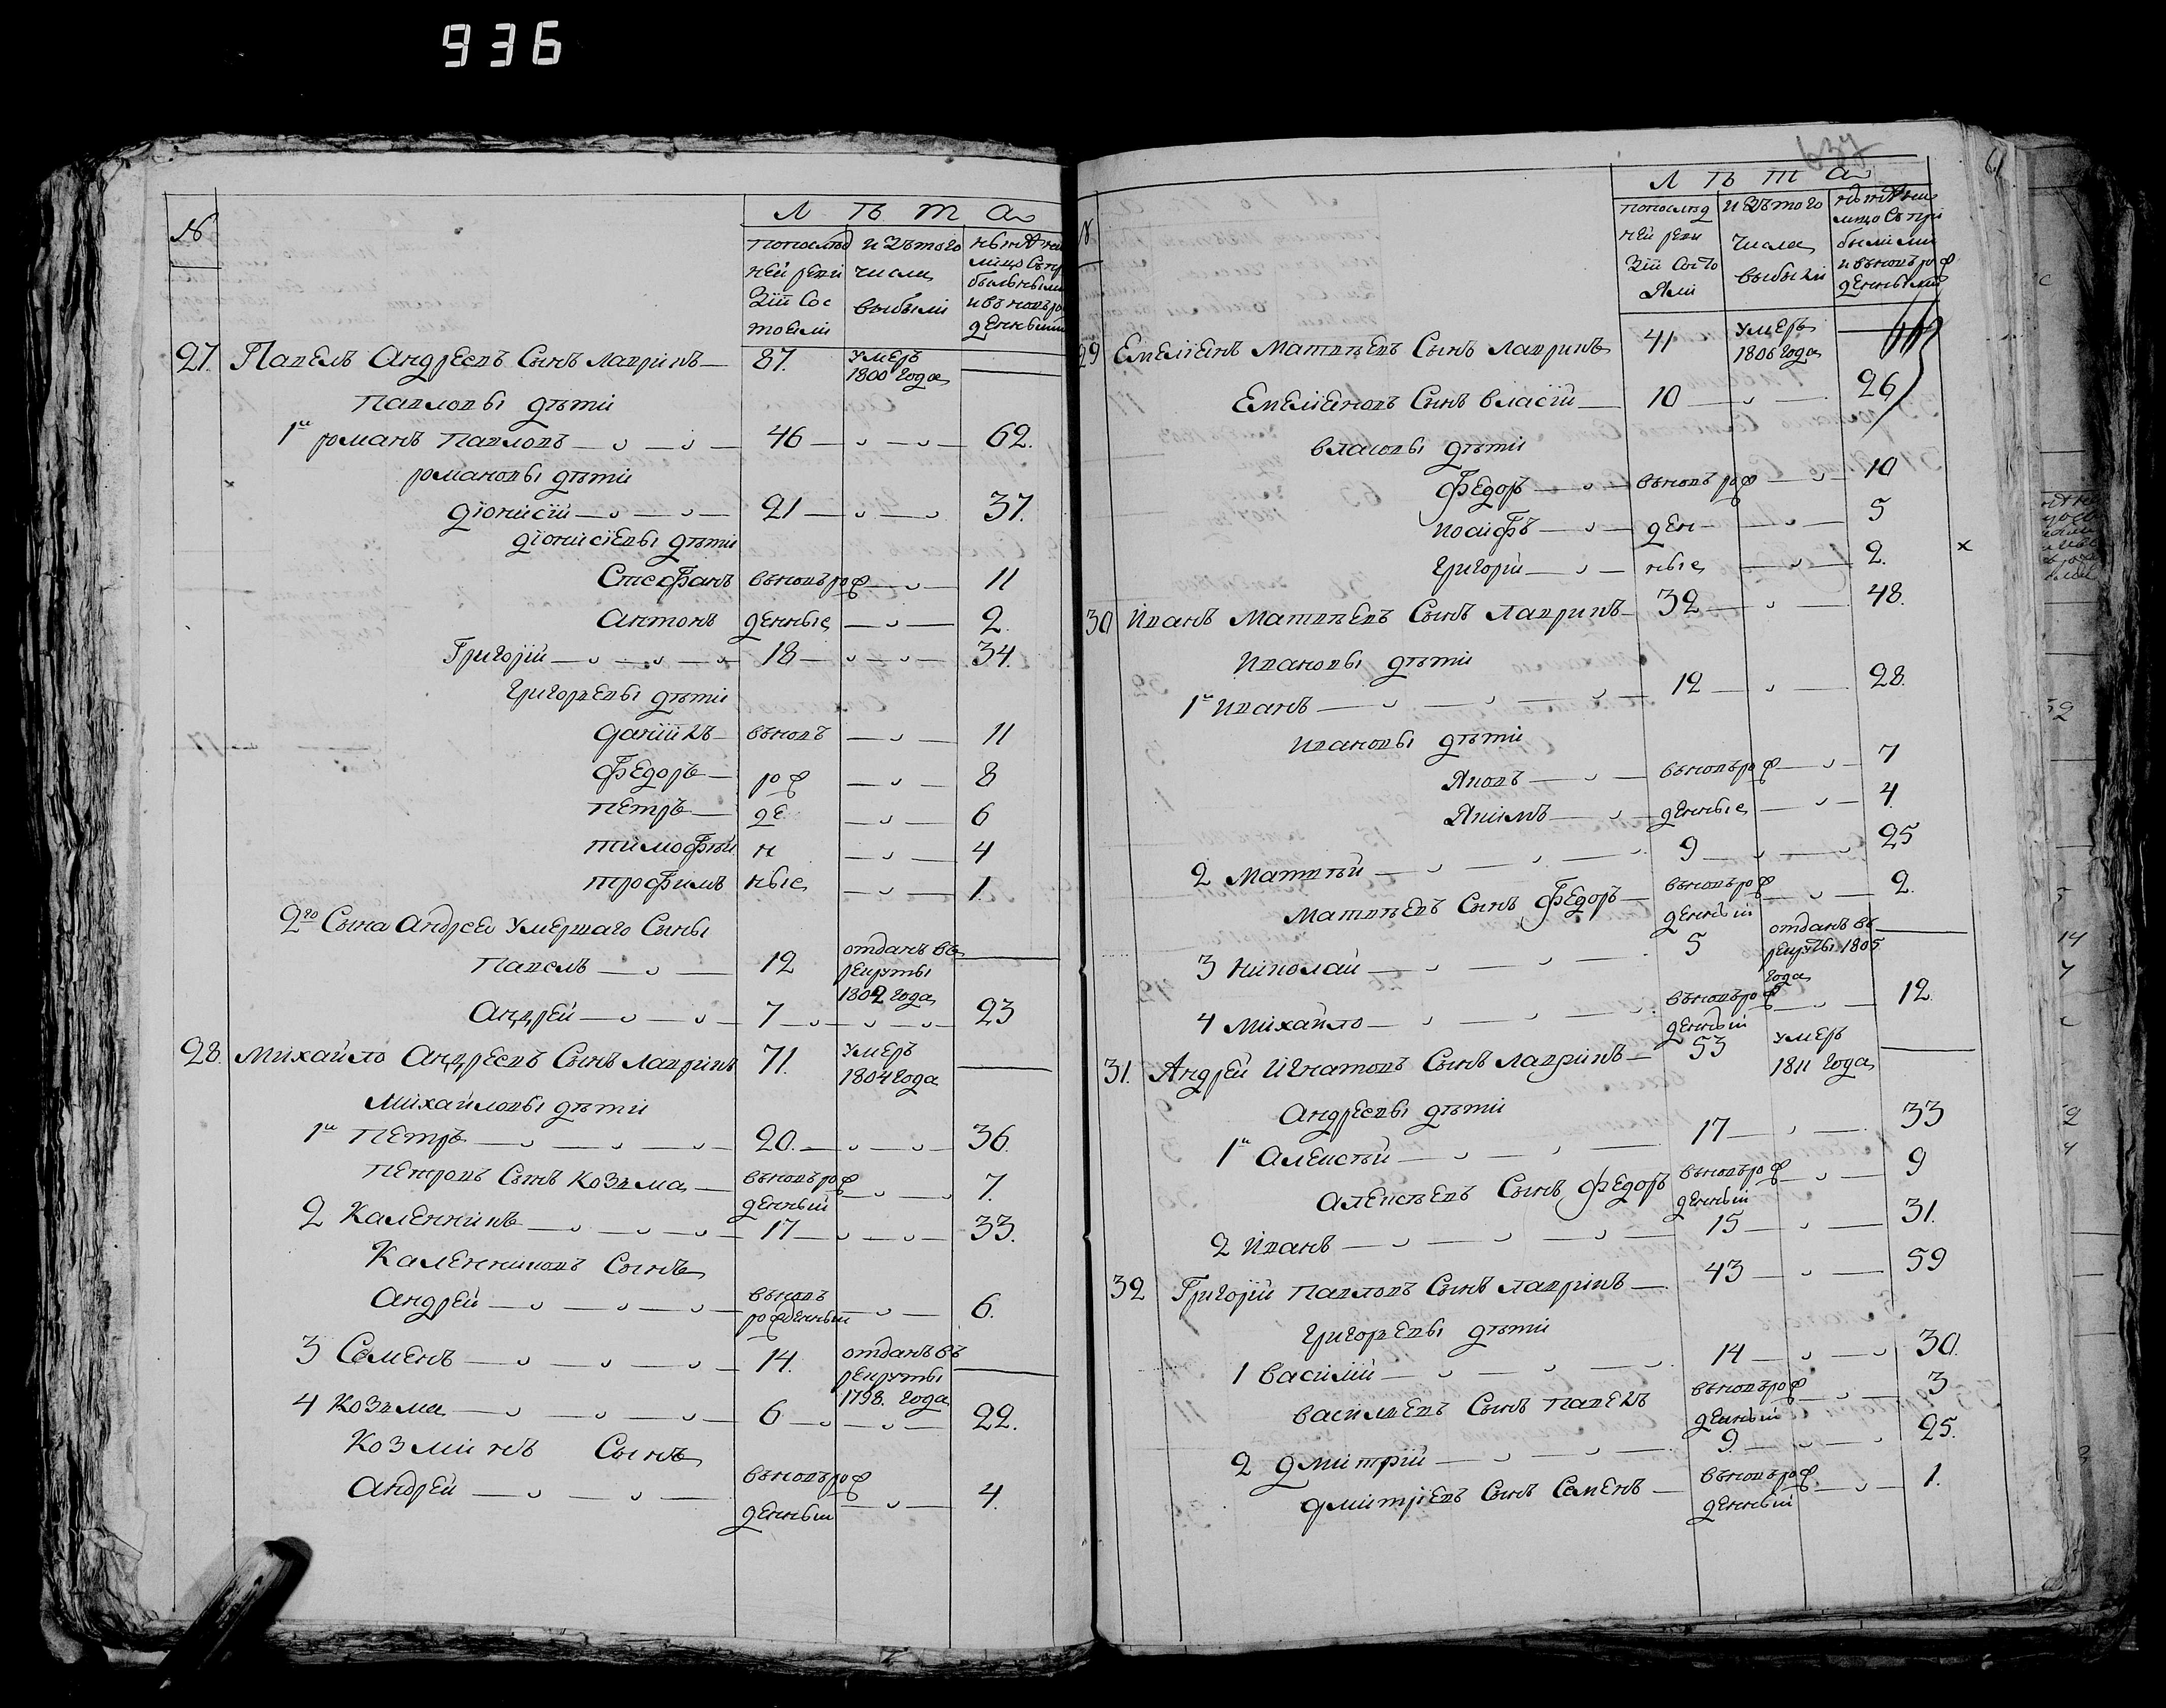 936
№
Л Ѣ Т А
попослѣд
ней реви
зіи сос
тояли
изътого
числа
выбыли
нынѣ на
лицо съпр
быльными
ивъновьро
жденными
27. Павелъ Андреевъ Сынъ Лавринъ — 87. умеръ
1800 года
Павловы дѣти
1й романъ Павловъ — 46 — 62.
романовы дѣти
діонисій — 21 — 37.
діонисіевы дѣти
Стефанъ вьновьрож — 11
антонъ денные — 2.
Григорій — 18 — 34.
григорьевы дѣти
даніилъ — вьновь — 11
федоръ — рож — 8
петръ — де — 6
тимофей н — 4
трофимъ ные — 1.
2го Сына Андрея Умершаго Сыны
Павелъ — 12 отданъ въ
рекруты
1802 года
Андрей — 7 — 23
28. Михайло Андреевъ Сынъ Лавринъ 71. умеръ
1804 года
Михайловы дѣти
1й Петръ — 20. — 36.
Петровъ Сынъ Козьма — вьновьрож
денный — 7.
2 Каленникъ — 17 — 33.
Каленниковъ Сынъ
Андрей — вьновь
рожденный — 6.
3 Семенъ — 14. отданъ въ
рекруты
1798. года
4 Козьма — 6 — 22.
Козминъ Сынъ
Андрей — вьновьрож
денный — 4.
637
61
№
Л Ѣ Т А
попослѣд
ней реви
зіи состо
яли
изътого
числа
выбыли
нынѣ на
лицо съпри
былыми
ивьновьрож
денными
29 Емеліенъ Матвѣевъ Сынъ Лавринъ 41 умеръ
1806 года
Емеліеновъ Сынъ власій — 10 — 26
власовы дѣти
Федоръ — вьновь рож — 10
иосифъ — ден — 5
григорій — ные — 2.
30 Иванъ Матвѣевъ Сынъ Лавринъ — 32 — 48.
Ивановы дѣти
1й Иванъ — 12 — 28.
ивановы дѣти
Яковъ — вьновьрож — 7
Якимъ — денные — 4.
2 Матвѣй — 9 — 25
Матвѣевъ Сынъ Федоръ — вьновьрож
денный — 2.
3 Николай — 5 отданъ въ
рекруты 1805
года
4 Михайло — вьновьрож
денный — 12.
31. Андрей Игнатовъ Сынъ Лавринъ — 53 умеръ
1811 года
Андреевы дѣти
1й Алексѣй — 17 — 33
Алексѣевъ Сынъ федоръ вьновьрож
денный — 9
2 Иванъ — 15 — 31.
32 Григорій Павловъ Сынъ Лавринъ — 43 — 59
Григорьевы дѣти
1 Василій — 14 — 30.
васильевъ Сынъ павелъ вьновьрож
денный — 3
2 Дмитрій — 9 — 25.
дмитріевъ Сынъ Семенъ — вьновьрож
денный — 1.